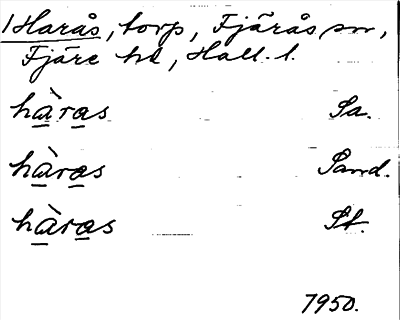 1 Harås, torp, Fjärås sn,
Fjäre hd, Hall. l.
hàras Sa.
hàras Sand.
hàras St.
1950.